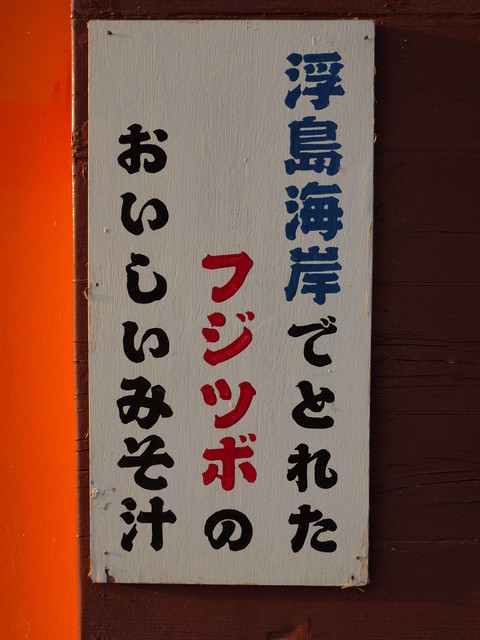 浮島海岸でとれた
フジツボの
おいしいみそ汁